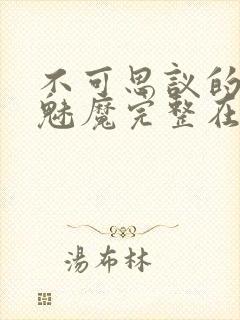 不可思议的
魅魔完整在
湯布林